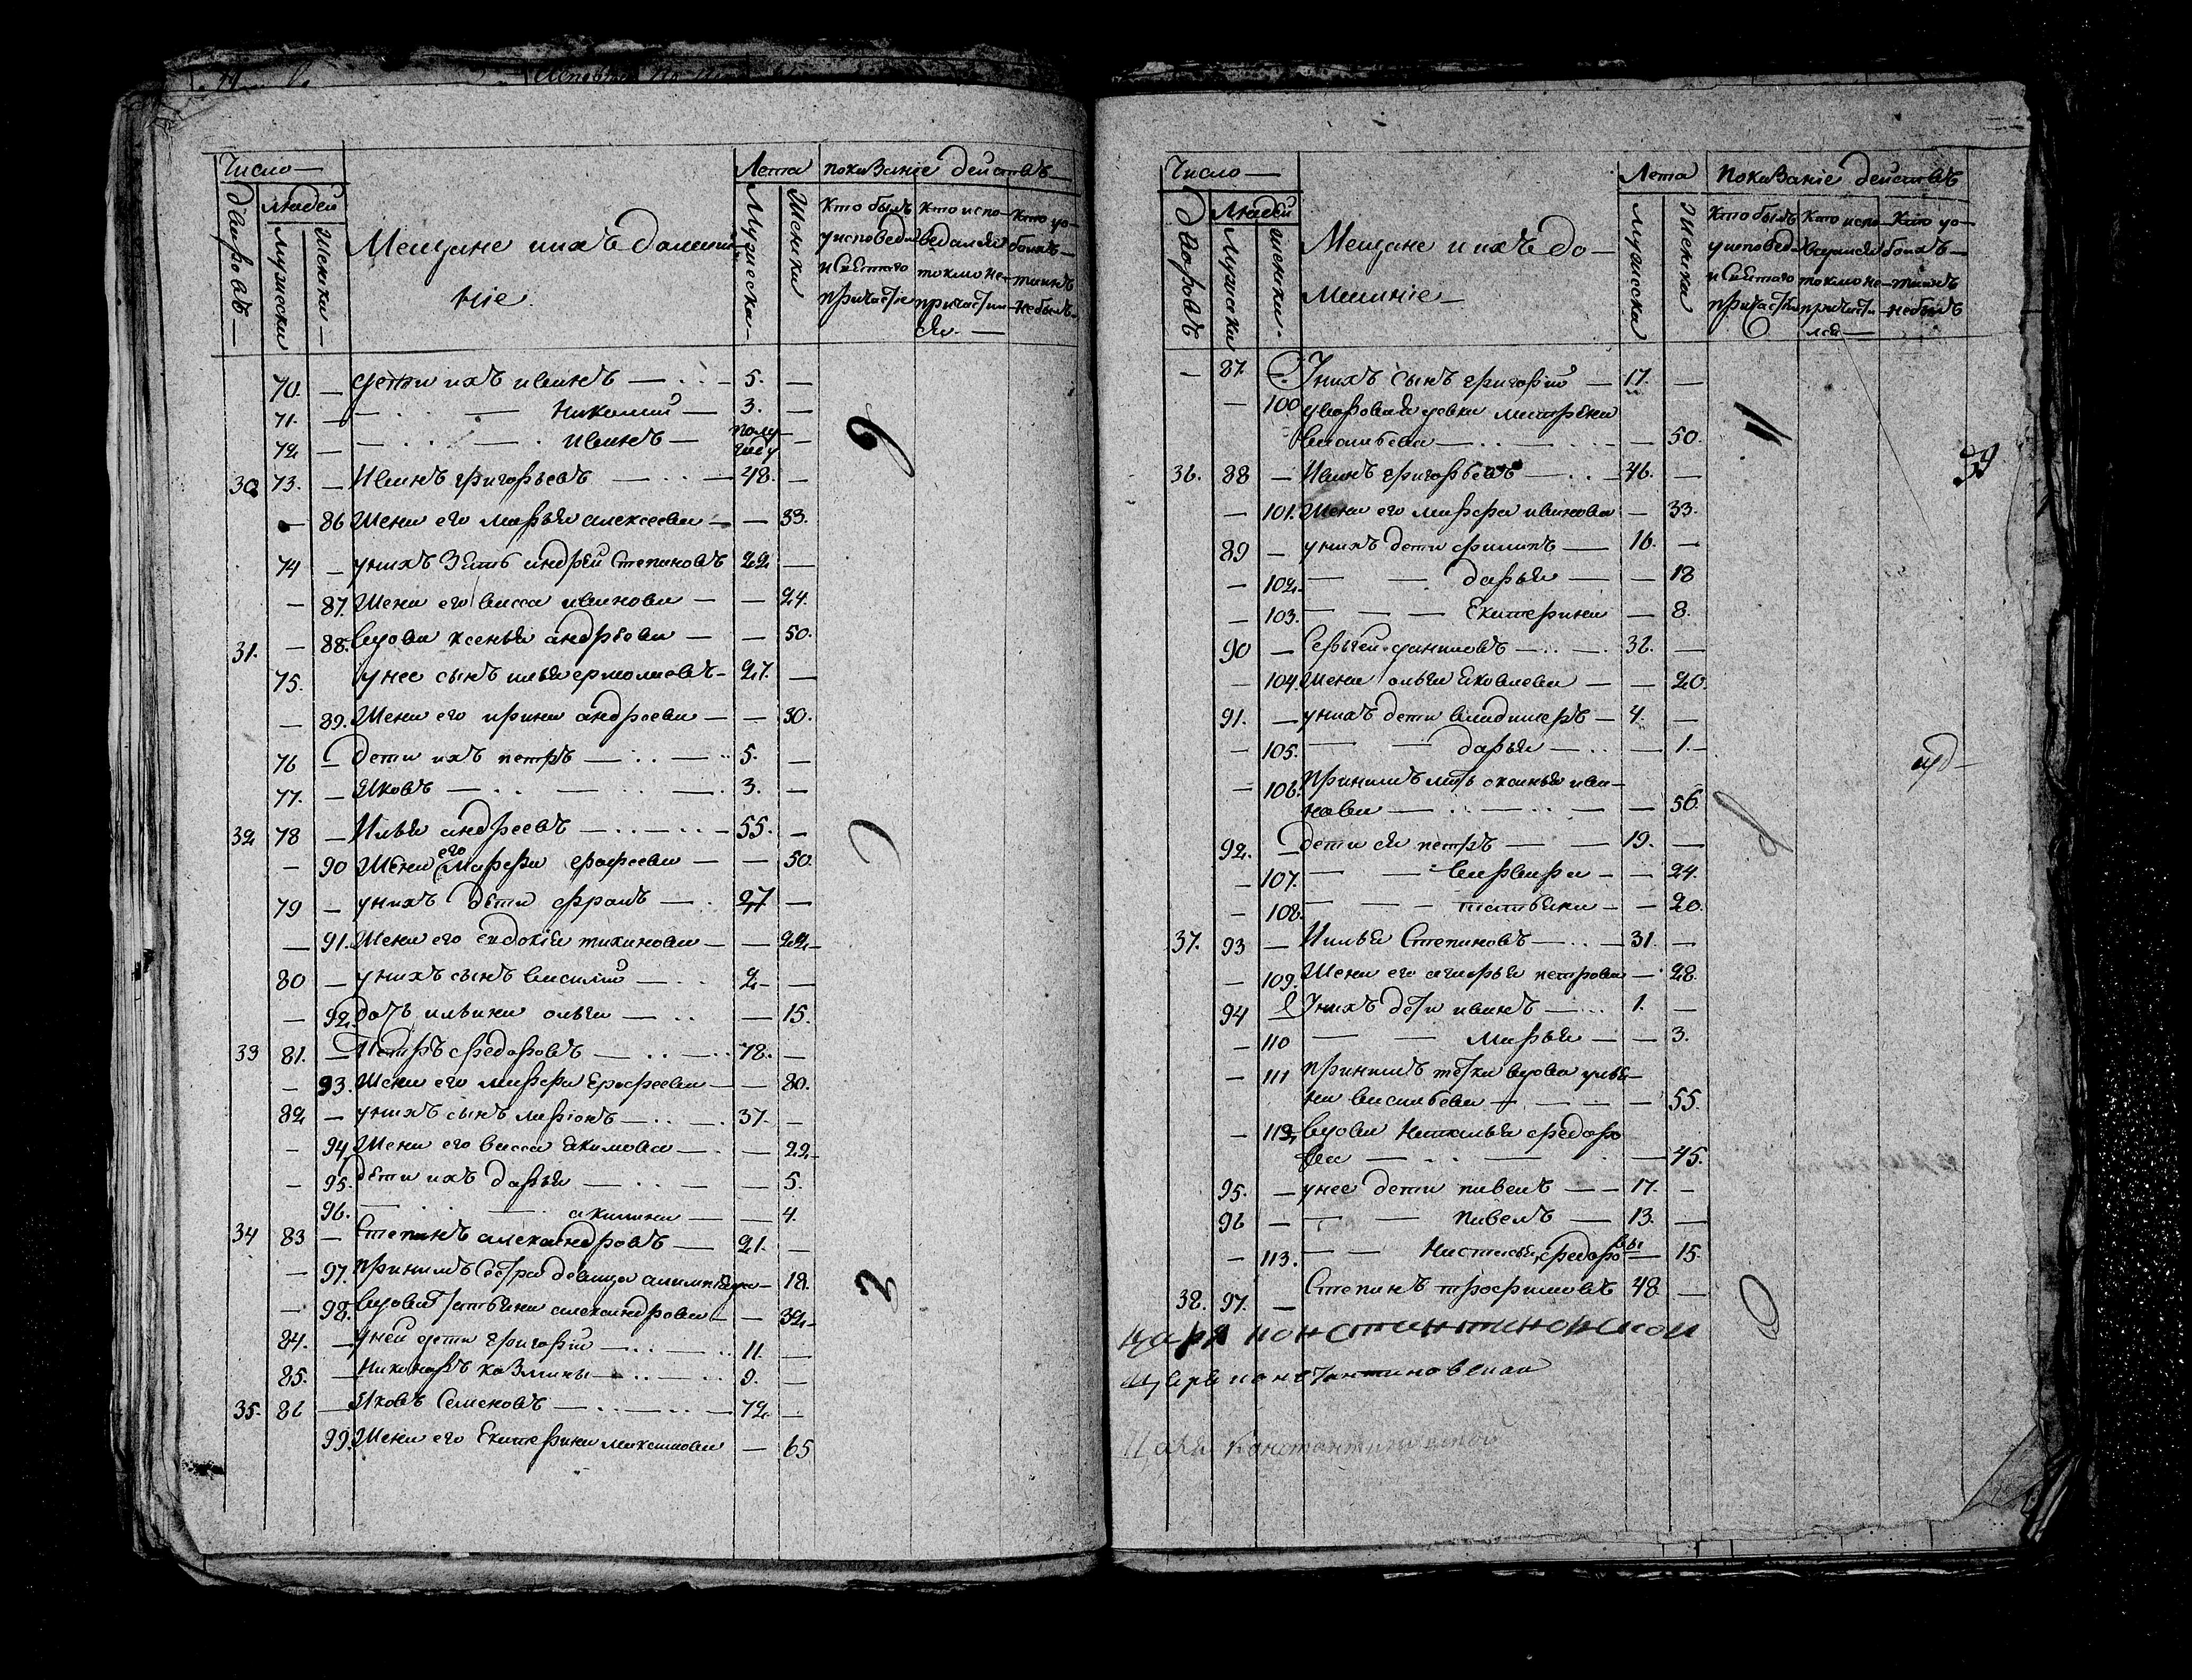 Число —
Лета показаніе действъ
дворовъ — людей мужески женски —
Мещане и ихъ домаш-
ніе.
мужеска — женски
кто былъ у исповеди и святаго причастіе
кто испо- ведался токмо не- причасти- ся. —
кто у о- боихъ — таинъ — не былъ.
70. — дети ихъ иванъ — 5. —
71. — николай — 3. —
72 — иванъ — полу году —
30 73. — Иванъ григорьевъ — 48. —
— 86 Жена его марья алексеева — — 33.
74 — у нихъ Зять андрей Степановъ 22 —
— 87. Жена его васса иванова — — 24.
31. — 88. вдова ксенья андреева — — 50.
75. у нее сынъ илья ермолаевъ — 27. —
— 89. Жена его ирина андреева — — 30.
76 — дети ихъ петръ — 5. —
77. — яковъ — 3. —
32 78 — Илья андреевъ — 55. —
— 90 Жена его Марфа ерофеева — — 50.
79 — у нихъ дети фролъ — 27 —
— 91. Жена его евдокія тиханова — — 22 —
80 — у нихъ сынъ василій — 2 — —
— 92 дочь ильина ольга — — 15.
33 81. — Петръ федоровъ — 78. —
— 93. Жена его марфа Ерофеева — — 80.
82 — у нихъ сынъ ларіонъ — 37. —
— 94. Жена его васса якимова — — 22 —
— 95. дети ихъ дарья — — 5.
96. акилина — — 4.
34 83 — Степанъ александровъ — 21. —
— 97. приналъ Сестра девица — 18.
— 98. вдова татьяна александрова — — 32 —
84. — у ней дети григорій — 11. —
85. — никоноръ казмины — 9. —
35. 86 — Яковъ Семеновъ — 72. —
99. Жена его Екатерина максимова — 65
9
2
3
Число —
Лета показаніе действъ
дворовъ людей мужски женски.
Мещане и ихъ до-
машніе —
мужеска женска
кто былъ у исповед- и святаго причастія
кто испо- ведался токмо не причасти- лся —
кто у о- боихъ — таинъ не былъ
— 87. У нихъ сынъ григорій — 17. —
— 100 дворовая девка матрена
васильева — — 50.
36. 88 — Иванъ григорьевъ — 46. —
— 101. Жена его марфа иванова — 33.
89 — у нихъ дети филипъ — 16. —
— 102. дарья — — 18
— 103. Екатерина — 8.
90 — Сергей даниловъ — 32. —
— 104. Жена ольга яковлева — — 20.
91. — у нихъ дети владимеръ — 4. —
— 105. дарья — — 1. —
— 106. приналъ мать оксинья ива-
нова — — 56.
92. — дети ея петръ — 19. —
— 107. варвара — — 24.
— 108. татьяна — — 20.
37. 93 — Илья Степановъ — 31. —
— 109. Жена его петрова — 28.
94 У нихъ дети иванъ — 1. —
— 110 Марья — — 3.
— 111 приналъ тетка вдова улья-
на васильева — — 55.
— 112 вдова наталья федоро
ва — — 45.
95. — у нее дети павелъ — 17. —
96 — павелъ — 13. —
— 113. настасья федоровы — 15.
38. 97. — Степанъ трофимовъ 48 —
11
39
8
0
царя константиновской
царя константиновской
Царя Константиновской